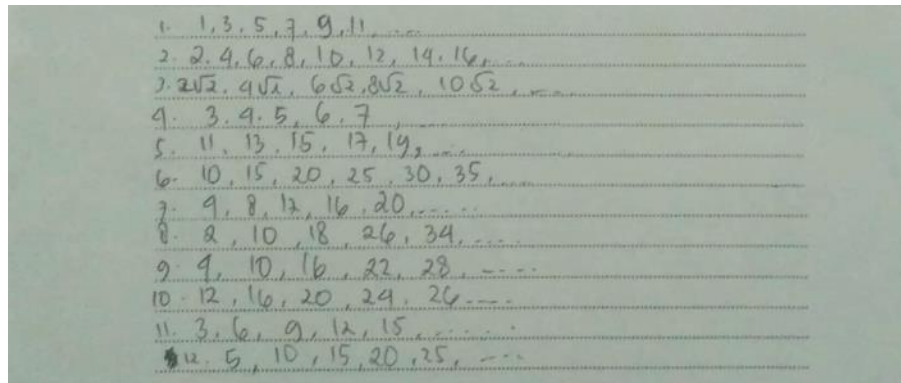 1. 1, 3, 5, 7, 9, 11, ....
2. 2, 4, 6, 8, 10, 12, 14, 16, ....
3. 2√2, 4√2, 6√2, 8√2, 10√2, ....
4. 3, 4, 5, 6, 7, ....
5. 11, 13, 15, 17, 19, ....
6. 10, 15, 20, 25, 30, 35, ....
7. 4, 8, 12, 16, 20, ......
8. 2, 10, 18, 26, 34, ....
9. 4, 10, 16, 22, 28, ....
10. 12, 16, 20, 24, 26 ....
11. 3, 6, 9, 12, 15, ......
12. 5, 10, 15, 20, 25, ....